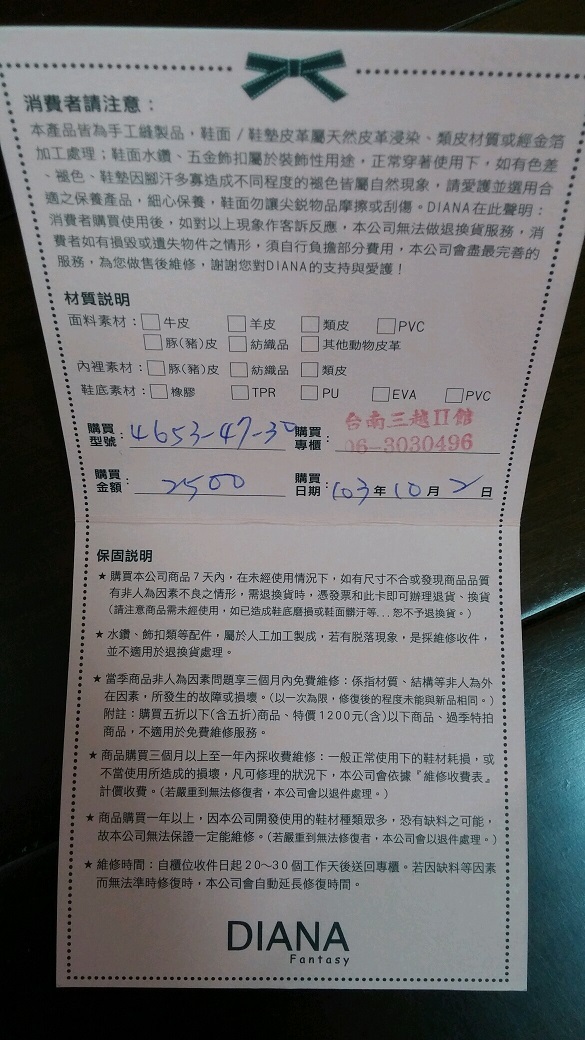 消費者請注意：
本產品皆為手工縫製品，鞋面／鞋墊皮革屬天然皮革浸染、類皮材質或經金箔
加工處理；鞋面水鑽、五金飾扣屬於裝飾性用途，正常穿著使用下，如有色差
、褪色、鞋墊因腳汗多寡造成不同程度的褪色皆屬自然現象，請愛護並選用合
適之保養產品，細心保養，鞋面勿讓尖銳物品摩擦或刮傷。DIANA在此聲明：
消費者購買使用後，如對以上現象作客訴反應，本公司無法做退換貨服務，消
費者如有損毀或遺失物件之情形，須自行負擔部分費用，本公司會盡最完善的
服務，為您做售後維修，謝謝您對DIANA的支持與愛護！
材質説明
面料素材：□牛皮 □羊皮 □類皮 □PVC
□豚(豬)皮 □紡織品 □其他動物皮革
內裡素材：□豚(豬)皮 □紡織品 □類皮
鞋底素材：□橡膠 □TPR □PU □EVA □PVC
購買型號：4653-47-30 購買專櫃：台南三越II館 06-3030496
購買金額：2500 購買日期：103年10月2日
保固説明
★購買本公司商品7天內，在未經使用情況下，如有尺寸不合或發現商品品質
有非人為因素不良之情形，需退換貨時，憑發票和此卡即可辦理退貨、換貨
(請注意商品需未經使用，如已造成鞋底磨損或鞋面髒汙等...恕不予退換貨。)
★水鑽、飾扣類等配件，屬於人工加工製成，若有脱落現象，是採維修收件，
並不適用於退換貨處理。
★當季商品非人為因素問題享三個月內免費維修：係指材質、結構等非人為外
在因素，所發生的故障或損壞。(以一次為限，修復後的程度未能與新品相同。)
附註：購買五折以下(含五折)商品、特價1200元(含)以下商品、過季特拍
商品，不適用於免費維修服務。
★商品購買三個月以上至一年內採收費維修：一般正常使用下的鞋材耗損，或
不當使用所造成的損壞，凡可修理的狀況下，本公司會依據『維修收費表』
計價收費。(若嚴重到無法修復者，本公司會以退件處理。)
★商品購買一年以上，因本公司開發使用的鞋材種類眾多，恐有缺料之可能，
故本公司無法保證一定能維修。(若嚴重到無法修復者，本公司會以退件處理。)
★維修時間：自櫃位收件日起20～30個工作天後送回專櫃。若因缺料等因素
而無法準時修復時，本公司會自動延長修復時間。
DIANA
Fantasy